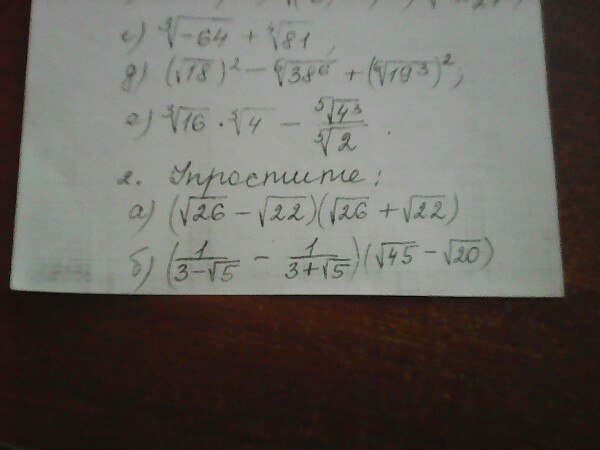 с) ∛-64 + ∜81,
д) (√18)² - ⁶√38⁶ + (⁶√19³)²;
е) ∛16 · ∛4 - ⁵√4³ / ⁵√2.
2. Упростите:
а) (√26 - √22)(√26 + √22)
б) (1/(3-√5) - 1/(3+√5))(√45 - √20)